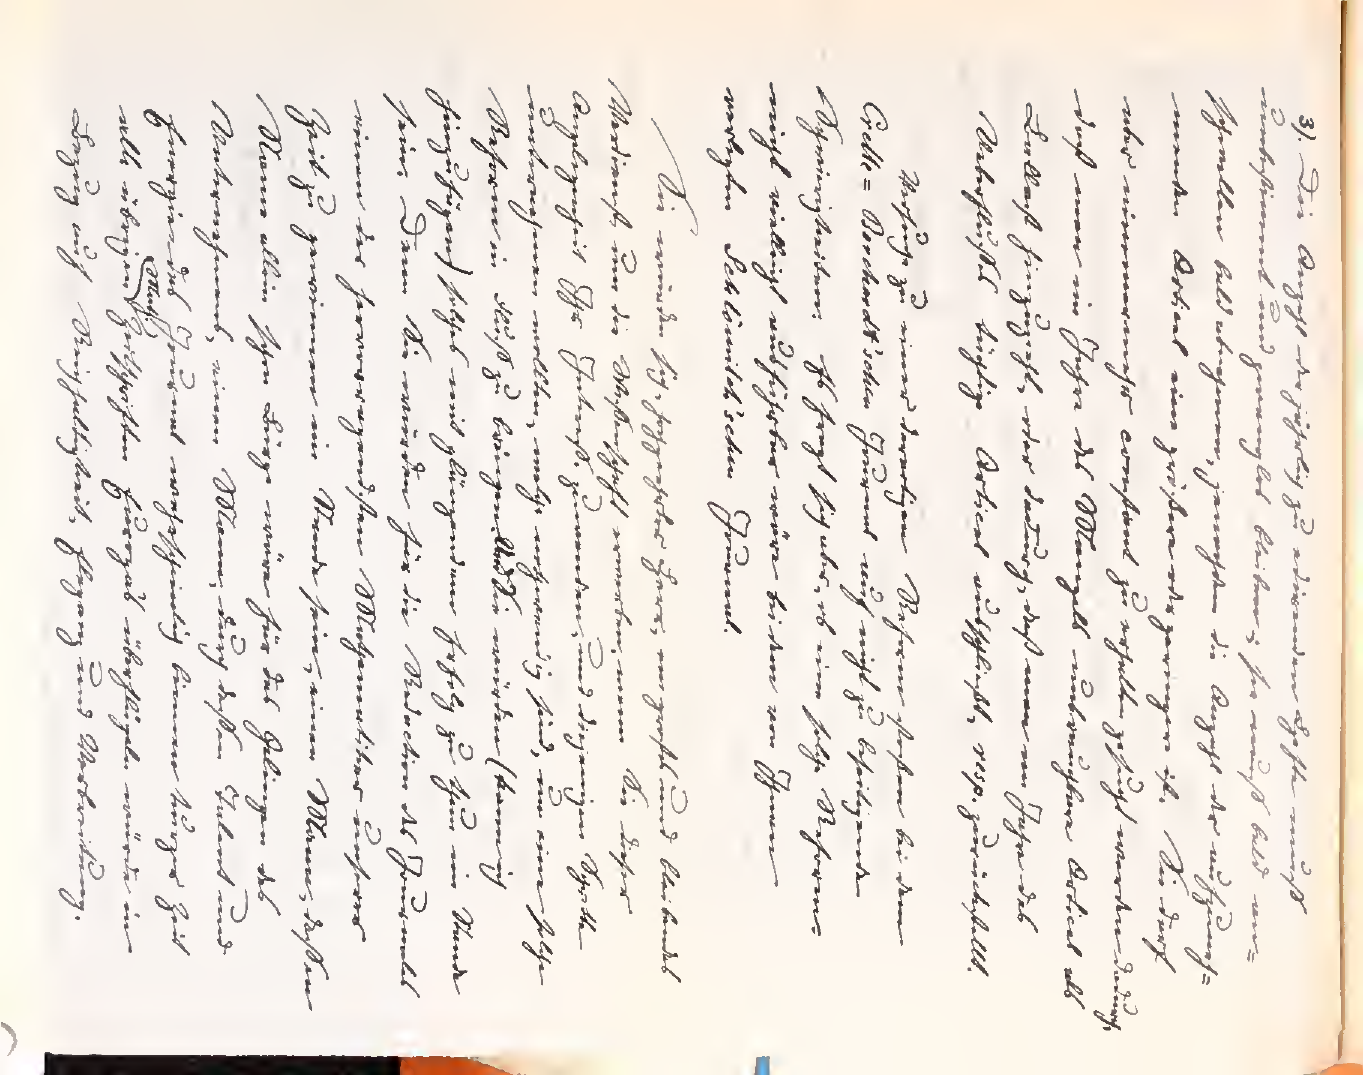 3). Die Anzahl der jährlich zu edirenden Hefte muß
unbestimmt und zwanglos bleiben; sie muß bald ver=
schnellert bald abnehmen, jenachdem die Anzahl der aufzuneh=
menden Artikel eine größere oder geringere ist. Sie darf
aber nimmermehr constant zu erhalten gesucht werden dadurch,
daß man im Falle des Mangels unbrauchbare Artikel als
Ballast hinzuzieht, oder dadurch, daß man im Falle des
Ueberflußes tüchtige Artikel ausschließt, resp. zurückstellt.
Versuche zu einer derartigen Reform stoßen bei dem
Crelle=Borchardt'schen Journal auf nicht zu beseitigende
Schwierigkeiten. Es fragt sich aber, ob eine solche Reform
nicht vielleicht ausführbar wäre bei dem von Ihnen
verlegten Schlömilch'schen Journal.
Sie würden sich, hochgeehrter Herr, ein großes und bleibendes
Verdienst um die Wissenschaft erwerben, wenn Sie dieser
Angelegenheit Ihr Interesse zuwenden, und diejenigen Schritte
unternehmen wollten, welche nothwendig sind, um eine solche
Reform in Fluß zu bringen. Auch Sie würden (wenn ich
hinzufügen) solches mit glänzendem Erfolg zu thun im Stande
sein. Denn Sie würden für die Redaction des Journales
einen der hervorragendsten Mathematiker unserer
Zeit zu gewinnen im Stande sein, einen Mann, dessen
Name allein schon Bürge wäre für das Gelingen des
Unternehmens, einen Mann, durch dessen Talent und
Energie das Journal wahrscheinlich binnen kurzer Zeit
alle übrigen (Math.) Zeitschriften Europas überflügeln würde in
Bezug auf Reichhaltigkeit, Eleganz und Verbreitung.